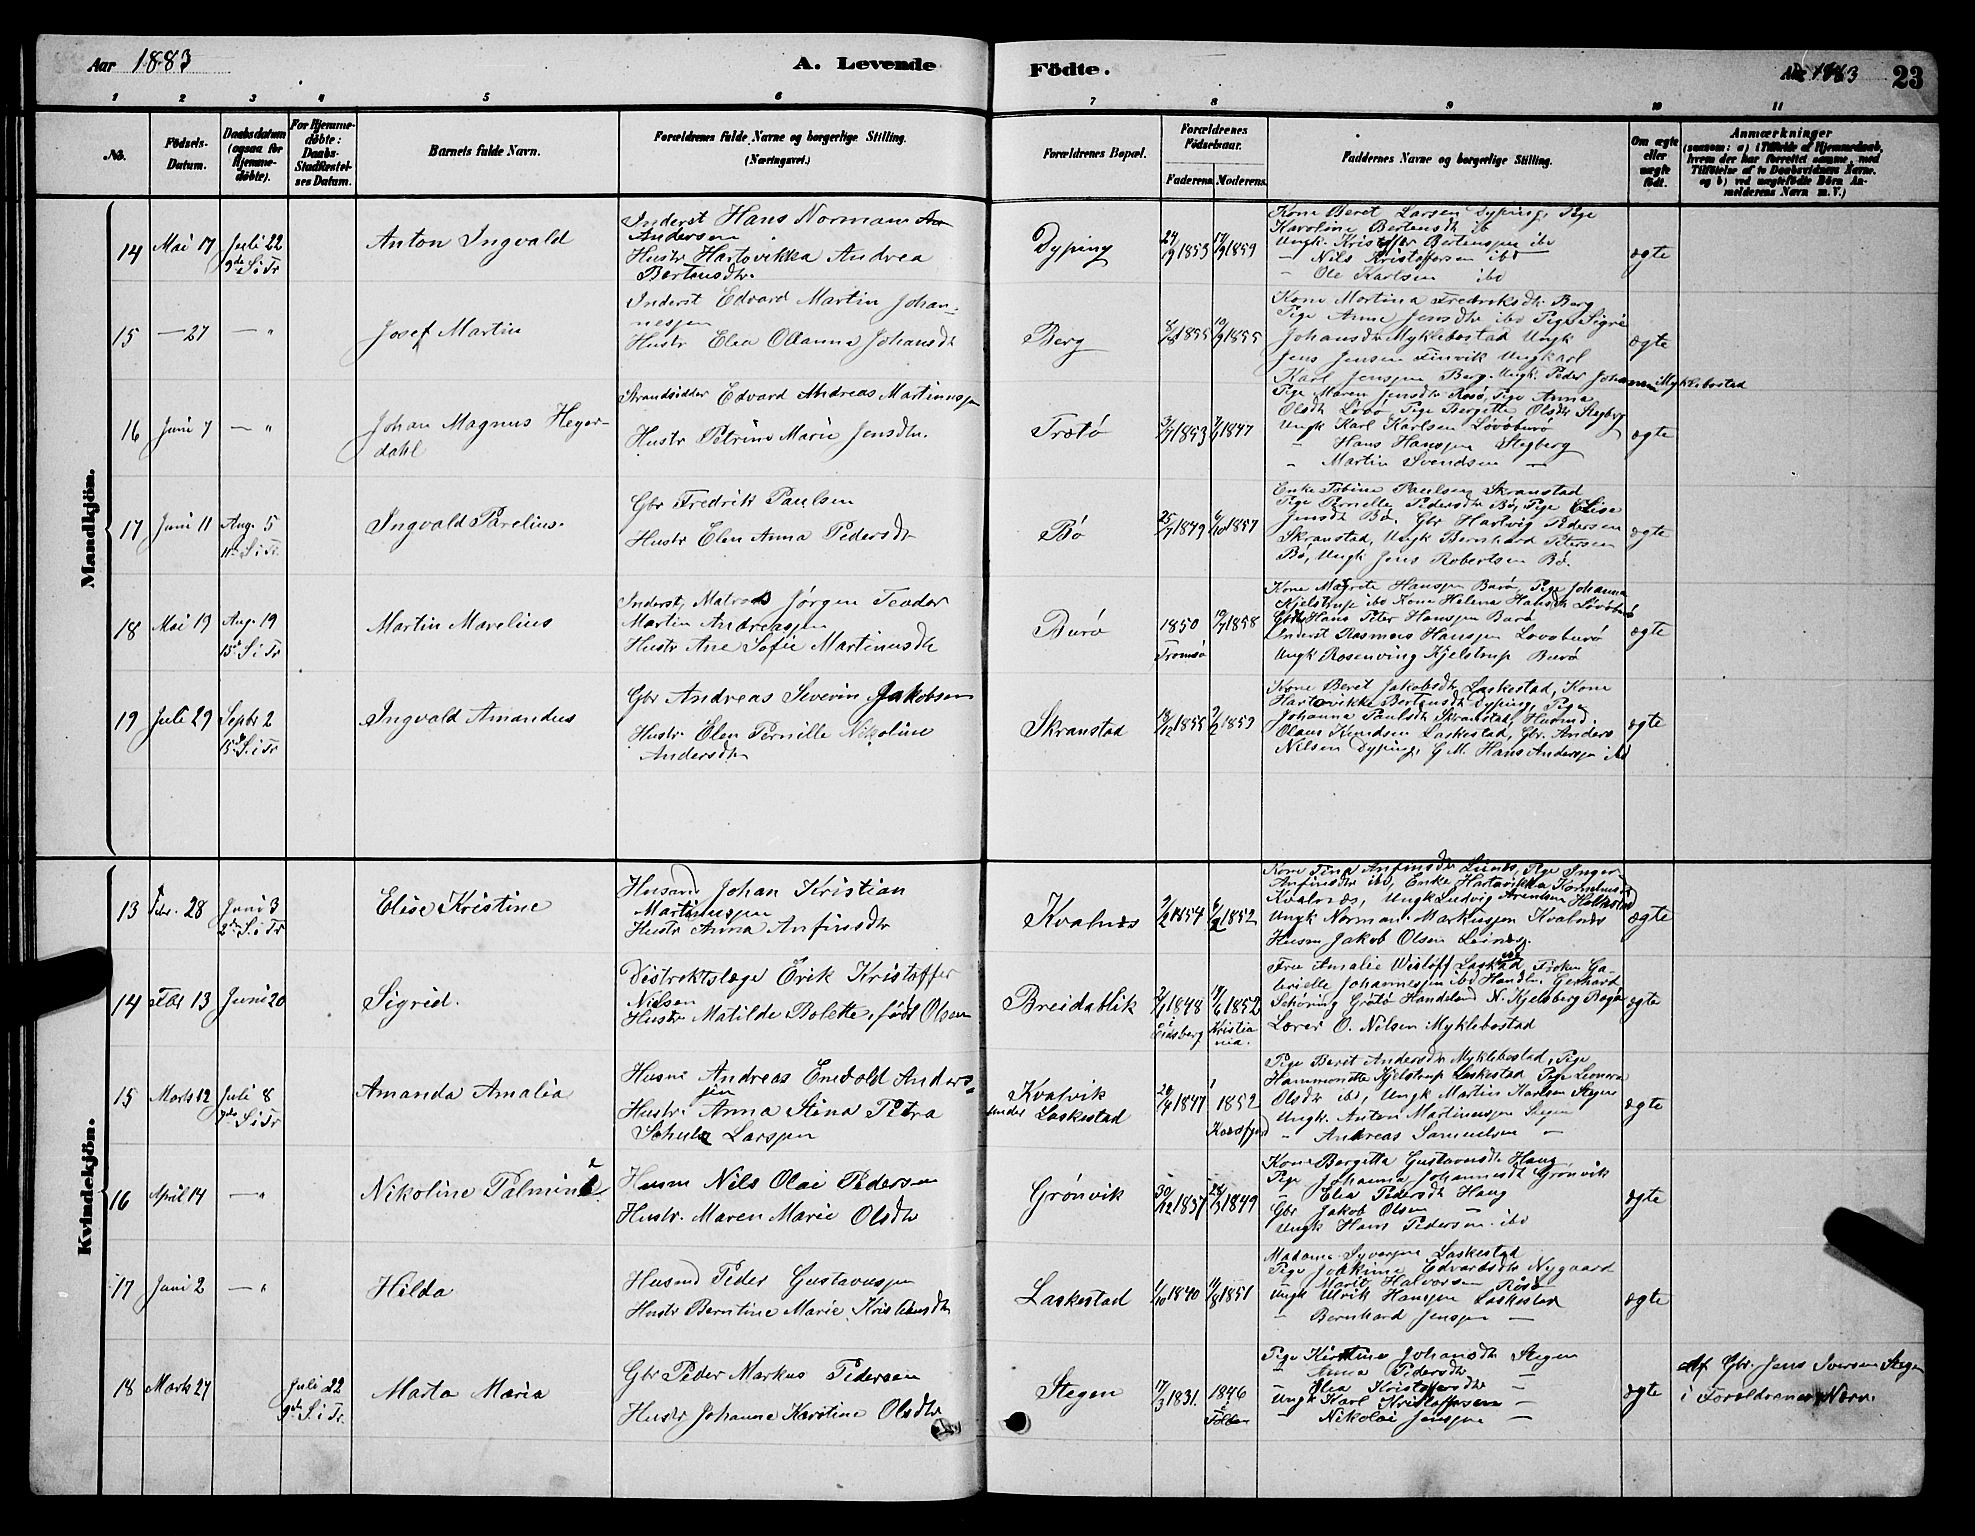 Aar 1883
A. Levende
Födte.
Aar 1883
23
1 2 3 4 5 6 7 8 9 10 11
No.
Födsels-
Datum.
Daabsdatum
(ogsaa for
Hjemme-
döbte).
For Hjemme-
döbte:
Daabs-
Stadfæstel-
ses Datum.
Barnets fulde Navn.
Forældrenes fulde Navne og borgerlige Stilling.
(Næringsvei.)
Forældrenes Bopæl.
Forældrenes
Födselsaar.
Faderens. Moderens.
Faddernes Navne og borgerlige Stilling.
Om ægte
eller
uægte
födt.
Anmærkninger
(saasom: a) i Tilfælde af Hjemmedaab,
hvem der har forrettet samme, med
Tilföielse af to Daabsvidners Navne.
og b) ved uægtefödte Börn An-
melderens Navn m. V.)
Mandkjön.
14 Mai 17 Juli 22
9de S. i Tr
Anton Ingvald
Inderst Hans Normann
Andersen
Hustr Hartvikka Andrea
Bertensdtr.
Dyping
24/9 1853 17/9 1859
Kone Beret Larsen Dyping, Pige
Karoline Bertensdtr ib
Ungk. Kristoffer Bertenssen ibd
" Nils Kristoffersen ibd
" Ole Karlsen ibd
ægte
15 — 27 — "
Josef Martin
Inderst Edvard Martin Johan-
nessen
Hustr Elea Oleanna Johansdtr
Berg
8/8 1855 1855
Kone Martina Fredriksdtr Berg
Pige Anne Jensdtr ibd Pige Sigrid
Johansdtr Myklebostad Ungk
Jens Jensen Finvik Ungkarl
Karl Jenssen Berg. Ungk. Peder Johansen Myklebostad
ægte
16 Juni 7 — "
Johan Magnus Heyer-
dahl
Strandsidder Edvard Andreas Martinussen
Hustr Petrine Marie Jensdtr.
Trotö
1853 1847
Pige Maren Jensdtr Rösö, Pige Anna
Olsdtr Lövö, Pige Bergitte Olsdtr Stegberg
Ungk Karl Karlsen Lövöburö
" Hans Hanssen Stegberg
" Martin Svendsen —
ægte
17 Juni 11 Aug. 5
11te S. i Tr.
Ingvald Parelius
Gbr Fredrik Paulsen
Hustr Elen Anna Pedersdtr
Bö
25/7 1849 6/10 1857
Enke Tobine Paulsen Skranstad
Pige Pernille Pedersdtr Bö, Pige Elise
Jensdtr Bö. Gbr Hartvig Pedersen
Skranstad, Ungk Bernhard Petersen
Bö, Ungk Jens Robertsen Bö.
ægte
18 Mai 19 Aug. 19
13de S i Tr
Martin Marelius
Inderst, Matros Jörgen Teodor
Martin Andreassen
Hustr Ane Sofie Martinusdtr
Burö
1850
Tromsö
1858
Kone Magrete Hanssen Burö, Pige Johanna
Kjelstrup ibd Kone Helena Hansdtr Lövöburö
Gbr Hans Peter Hanssen Burö
Inderst Rasmus Hanssen Lovoburö
Ungk Rosenving Kjelstrup Burö
ægte
19 Juli 29 Septbr 2
15de S. i Tr
Ingvald Amandus
Gbr Andreas Severin Jakobsen
Hustr Elen Pernille Nikoline
Andersdtr
Skranstad
1855 1859
Kone Beret Jakobsdtr Laskestad, Kone
Hartvikke Bertensdtr Dyping, Pige
Johanna Paulsdtr Skranstad, Husmd.
Olaus Knudsen Laskestad, Gbr. Anders
Nilsen Dyping, G. M. Hans Anderssen ibd
ægte
Kvindekjön.
13 Febr. 28 Juni 3
2den S. i Tr
Elise Kristine
Husmd Johan Kristian
Martinussen
Hustr Anna Anfinsdtr
Kvalnes
1854 1852
Kone Tina Anfinsdtr Leines, Pige Inger
Anfinsdtr ibd, Enke Hartvikka Korneliusdtr
Kvalnæs, Ungk Ludvig Arentsen Holkestad
Ungk Norman Markussen Kvalnæs
Husm Jakob Olsen Leines.
ægte
14 Febr 13 Juni 20
Sigrid.
Distriktslæge Erik Kristoffer
Nilsen
Hustr Matilde Bolette, födt Olsen
Breidablik
1848
i Eidsberg
1852
Kristia
nia.
Frue Amalie Wislöff Laskestad, Fröken Ga-
brielle Johannessen ibd Handlm. Gerhard
Schöning Grötö Handelsmd N. Kjelsberg Bogö
Lærer O. Nilsen Myklebostad
ægte
15 Marts 12 Juli 8
7de S. i Tr
Amanda Amalia
Husm Andreas Enevold Anders-
sen
Hustr. Anna Stina Petra
Schulz Larssen
Kvalvik
under Laskestad
1847 1852
Kvædfjord
Pige Beret Andersdtr Myklebostad, Pige
Hammonette Kjelstrup Laskestad Pige Leonora
Olsdtr ibd, Ungk Martin Karlsen Stegen
Ungk. Anton Martinussen Stegen
" Andreas Samuelsen —
ægte
16 April 14 — "
Nikoline Palmine
Husm Nils Olai Pedersen
Hustr. Maren Marie Olsdtr
Grönvik
30/12 1837 1849
Kone Bergitta Gustavsdtr Haug
Pige Johanna Johannesdtr Grönvik
" Elea Pedersdtr Haug
Gbr Jakob Olsen —
Ungk Hans Pedersen ibd
ægte
17 Juni 2 — "
Hilda
Husmd Peder Gustavussen
Hustr Berntine Marie Kristiansdtr
Laskestad
1/10 1840 11/8 1851
Madame Syversen Laskestad
Pige Joakime Edvardsdtr Nygaard
" Marit Halvorsen Rösö
Ungk Ulrik Hanssen Laskestad
" Bernhard Jenssen —
ægte
18 Marts 27 Juli 22
9de S. i Tr.
Marta Maria
Gbr Peder Markus Pedersen
Hustr Johanna Karstine Olsdtr
Stegen
17/3 1831. 1846
i Folden
Pige Kirstine Johansdtr Stegen
" Anna Pedersdtr —
" Elea Kristoffersdtr —
Ungk Karl Kristoffersen —
" Nikolai Jenssen —
ægte
Af Gbr. Jens Iversen Stegen
i Forældrenes Nærv.